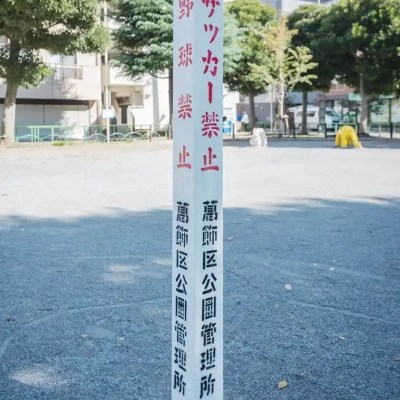 野球禁止
葛飾区公園管理所
サッカー禁止
葛飾区公園管理所